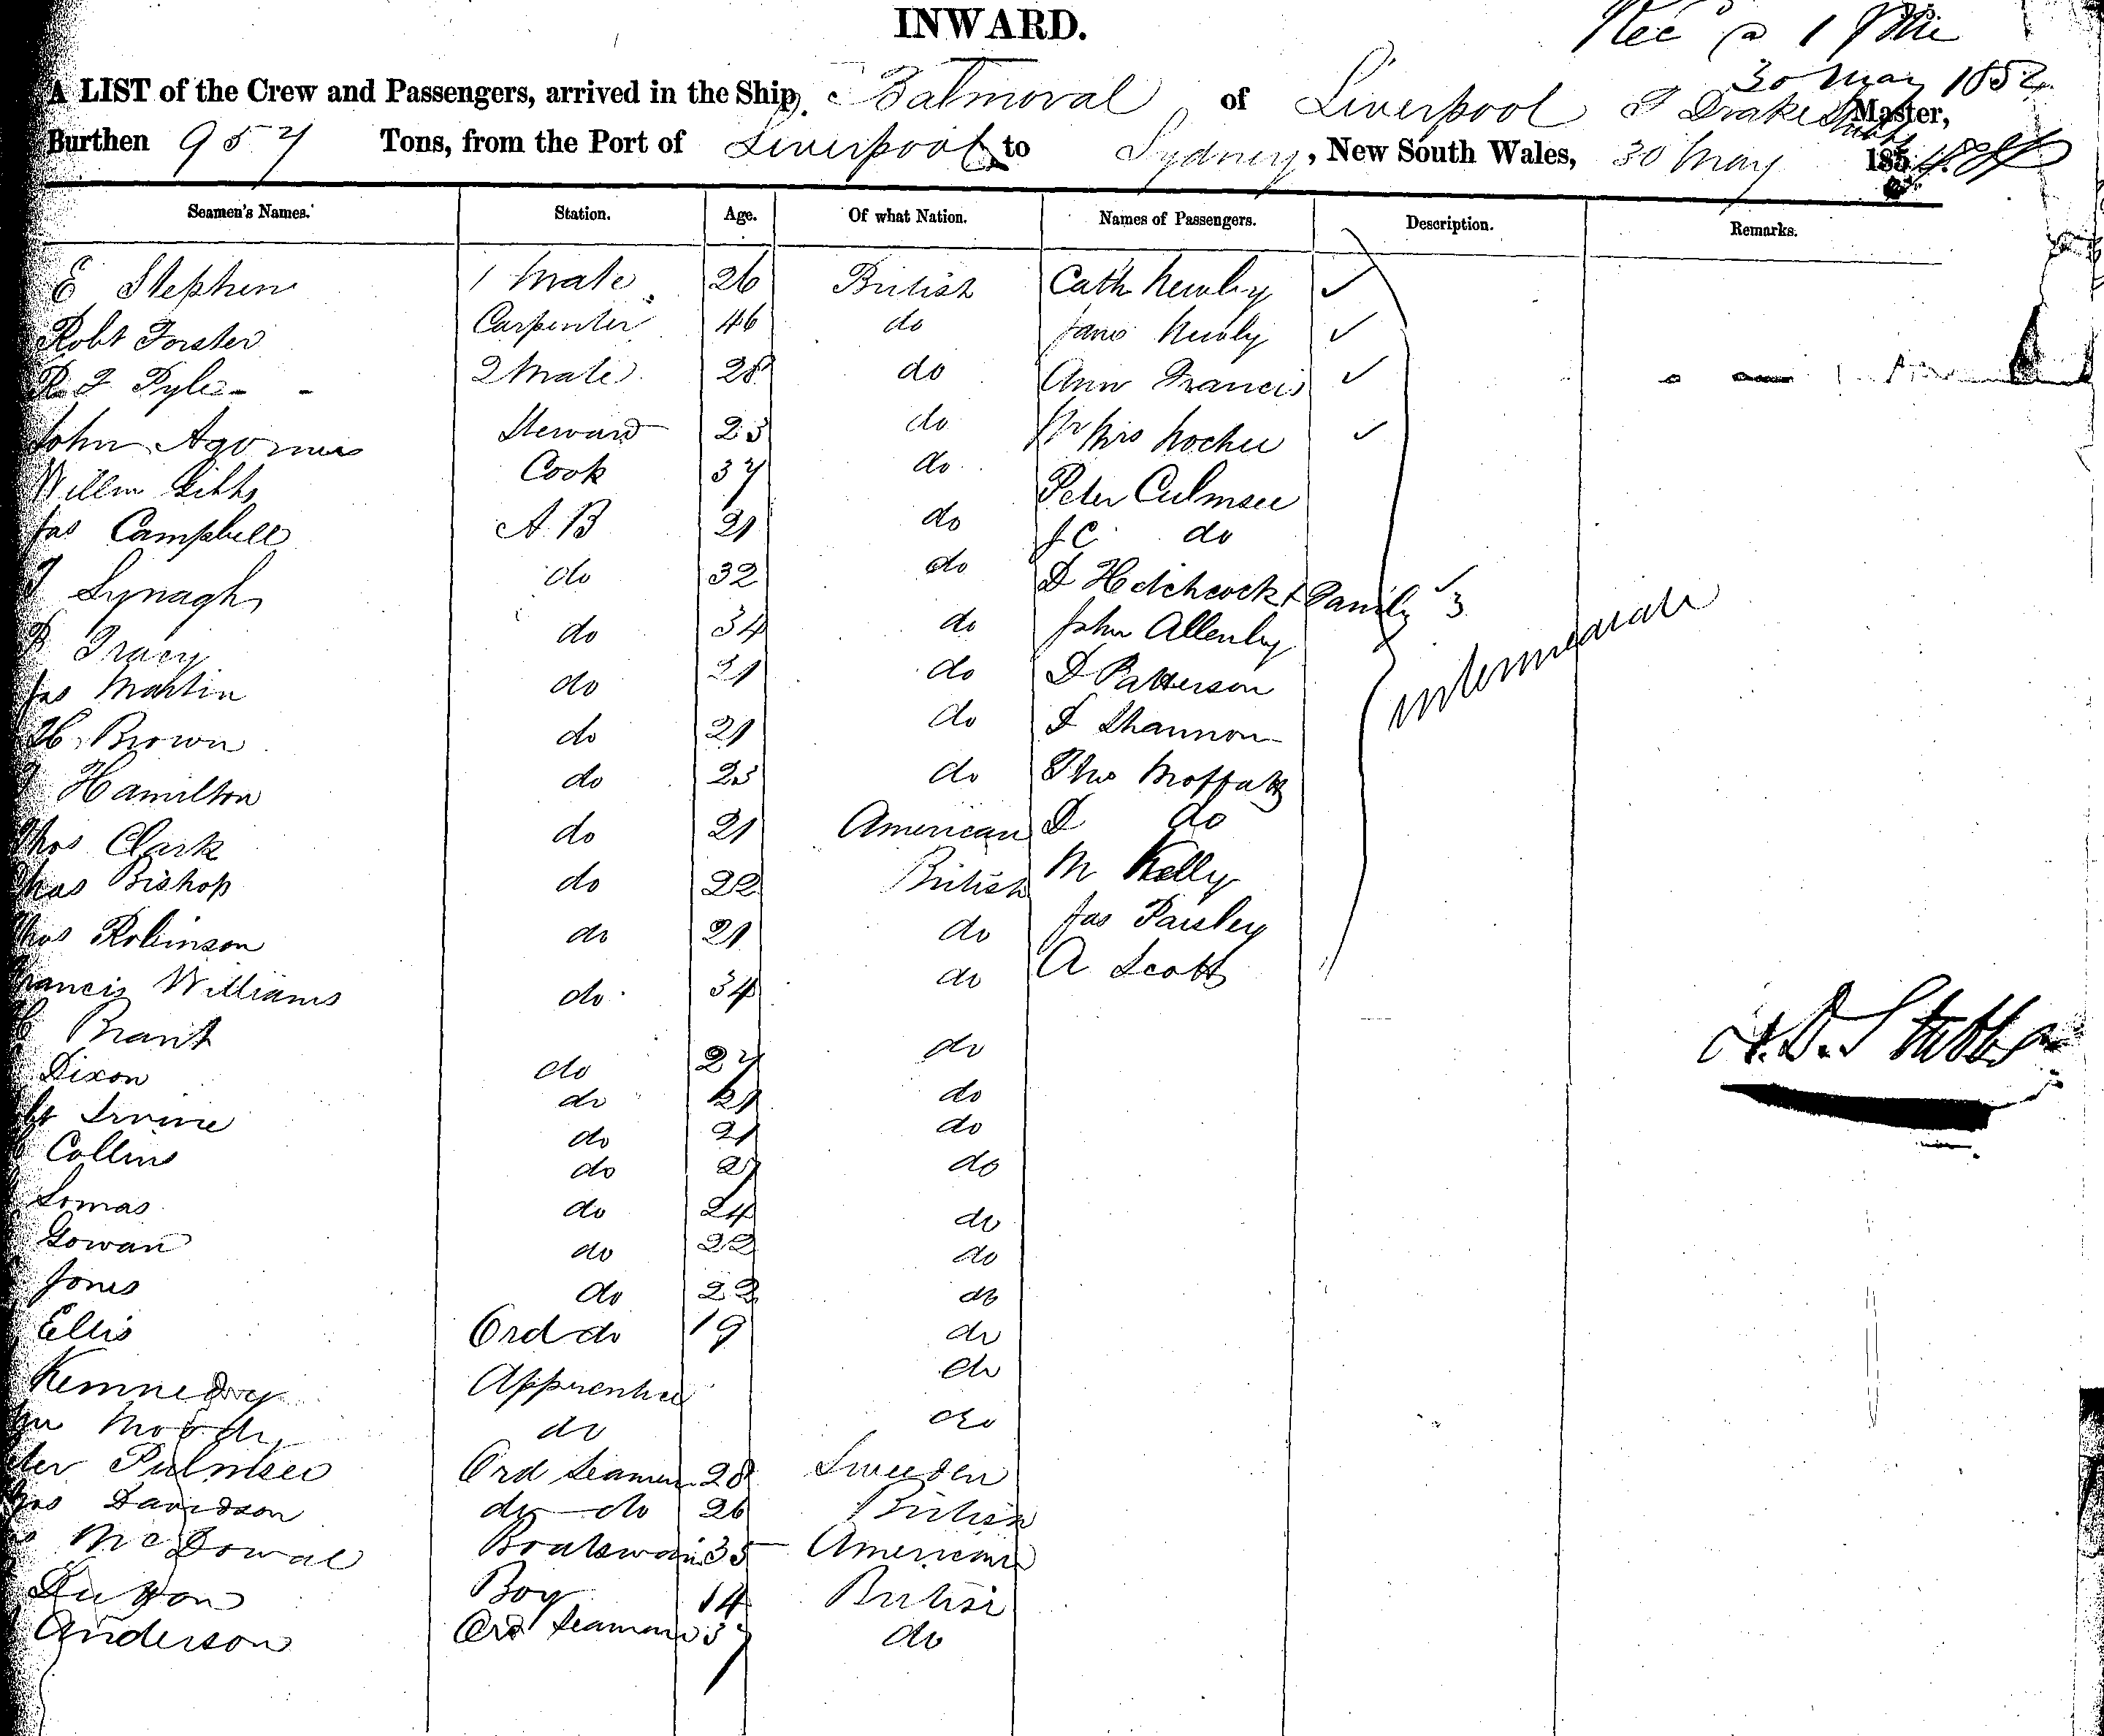 INWARD.
Recd @ 1 PM
30 May 1854
A LIST of the Crew and Passengers, arrived in the Ship Balmoral of Liverpool Drake Master,
Burthen 957 Tons, from the Port of Liverpool to Sydney, New South Wales, 30 May 185
Seamen's Names. Station. Age. Of what Nation. Names of Passengers. Description. Remarks.
E Stephen 1 Mate 26 British Cath Newby ✓
Robt Forster Carpenter 46 do Jane Newby ✓
Pyle 2 Mate 28 do Ann Francis ✓
John Steward 23 do Mrs ✓
Willm Gibbs Cook 37 do Peter Culmsee
Jas Campbell A B 21 do J C do
Lynagh do 32 do D Hitchcock & Family ✓ 3
Tracy do 34 do John Allenby
Jas Martin do 21 do D Patterson
H Brown do 21 do Shannon
Hamilton do 23 do Thos Moffatt
Thos Clark do 21 American D do
Chas Bishop do 22 British M Kelly
Thos Robinson do 21 do Jas Paisley
Francis Williams do 34 do A Scott
Intermediate
Brant do 27 do
Dixon do 21 do
Irvine do 21 do
Collins do 27 do
Lomas do 24 do
Gowan do 22 do
Jones do 22 do
Ellis Ord do 19 do
Kennedy Apprentice do
Moody do do
Ord Seamen 28 Sweden
Davidson do do 26 British
McDowal Boatswain 35 American
Boy 14 British
Anderson Ord Seaman do
D. Stubbs